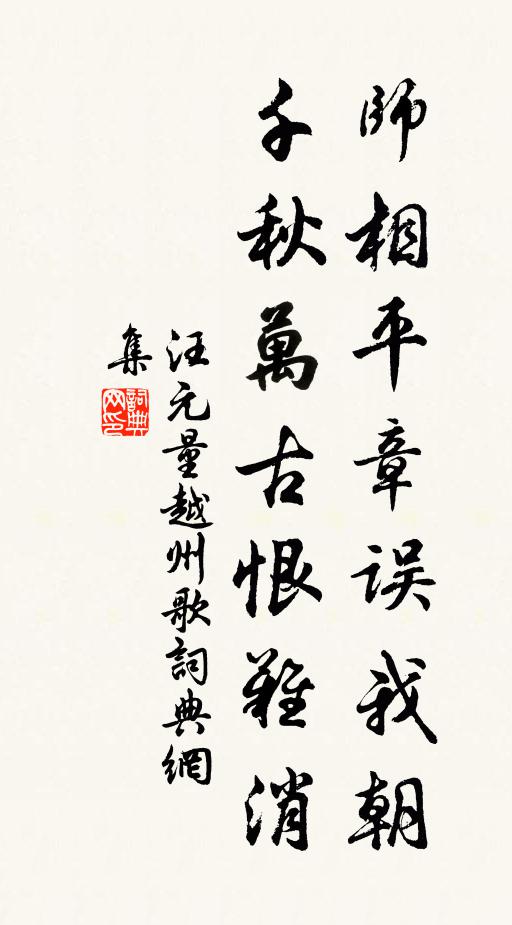 師相平章误我朝
千秋萬古恨難消
汪元量越州歌詞典網
集
詞典
网印